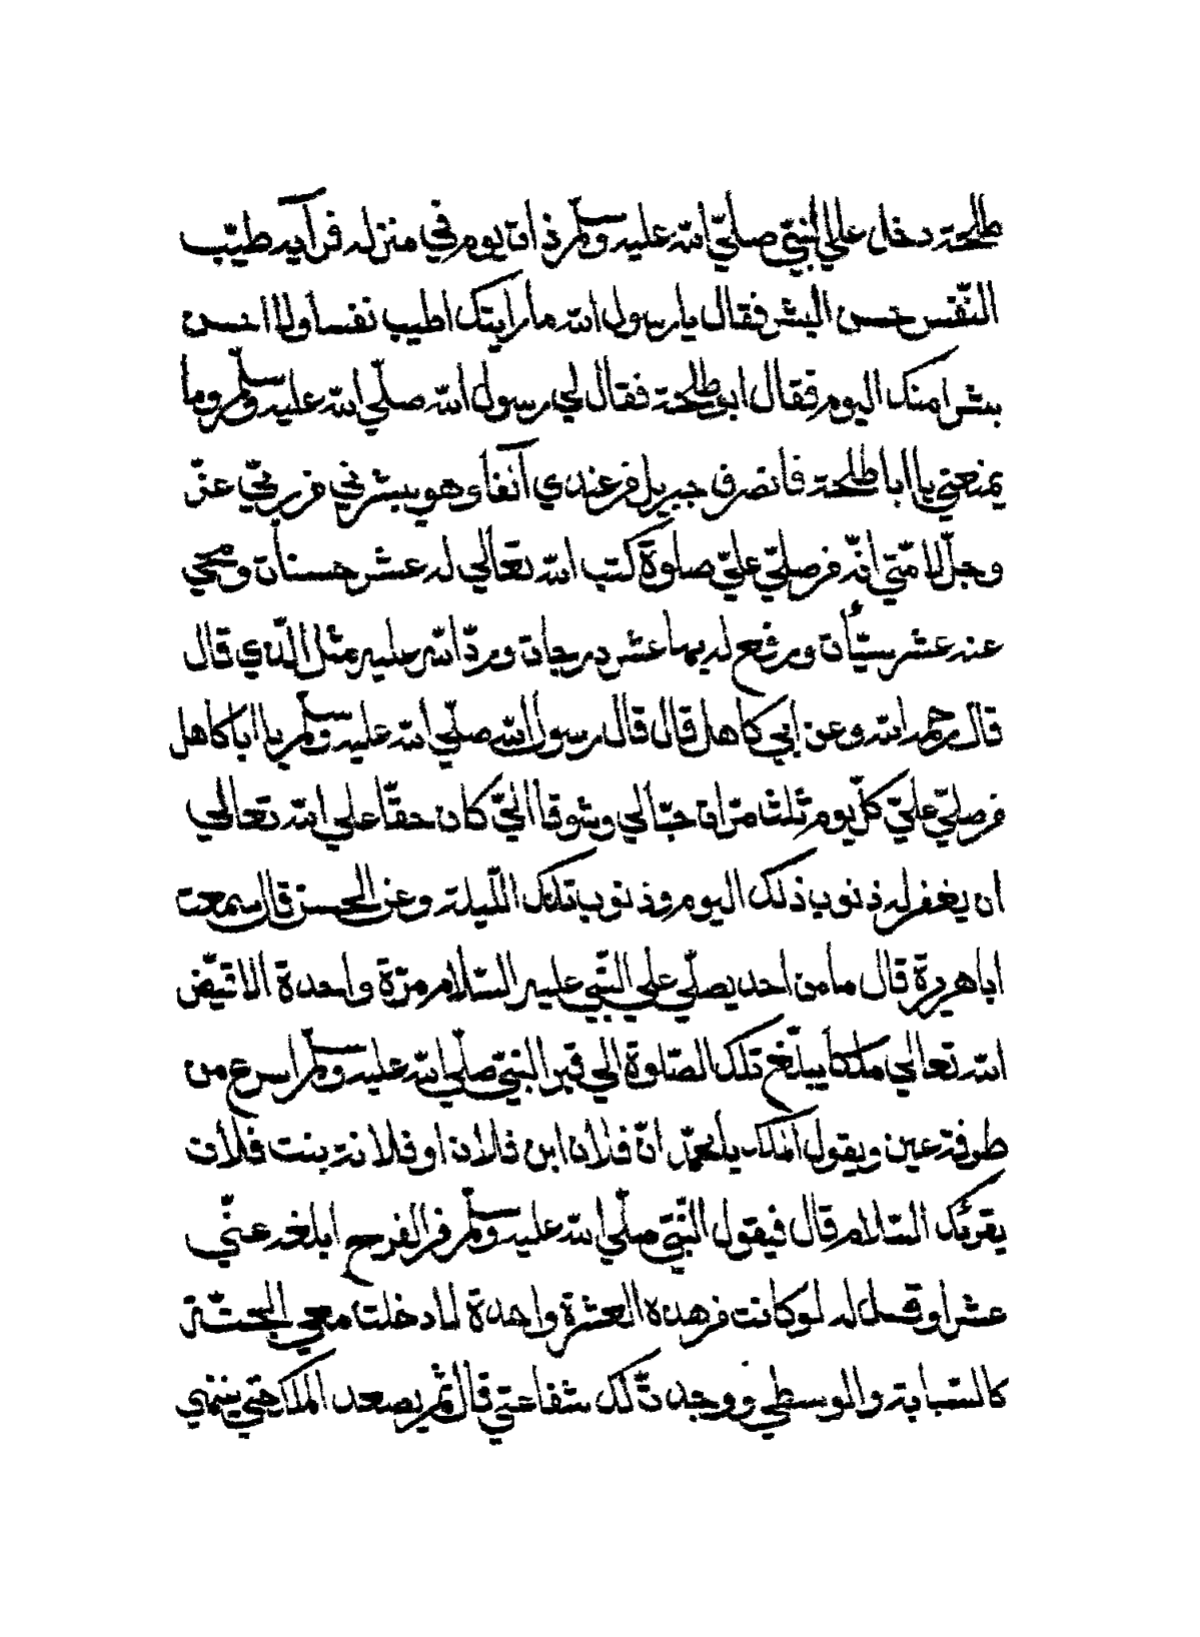 طلحة دخل علي النبيّ صلّي الله عليه وسلم ذات يوم في منزله فرآيه طيّب
النّفس حسن البشر فقال يا رسول الله ما رايتك اطيب نفسا ولا احسن
بشرا منك اليوم فقال ابو طلحة فقال لي رسول الله صلّي الله عليه وسلم وما
يمنعني يا ابا طلحة فانصرف جبريل من عندي آنفا وهو يبشرني من ربّي عزّ
وجلّ لامّتي انّه من صلّي عليّ صلوة كتب الله تعالي له عشر حسنات ومحي
عنه عشر سيّأت ورفع له بها عشر درجات وردّ الله عليه مثل الّذي قال
قال رحمه الله وعن ابي كاهل قال قال رسول الله صلّي الله عليه وسلم يا ابا كاهل
من صلّي عليّ كلّ يوم ثلث مرّات حبّا لي وشوقا اليّ كان حقّا علي الله تعالي
ان يغفر له ذنوب ذلك اليوم وذنوب تلك اللّيلة وعن الحسن قال سمعت
ابا هريرة قال ما من احد يصلّي علي النّبي عليه السّلام مرّة واحدة الا قيّض
الله تعالي ملكا يبلّغ تلك الصّلوة الي قبر النبيّ صلّي الله عليه وسلم اسرع من
طرفة عين ويقول الملك يا محمّد انّ فلان ابن فلان او فلانة بنت فلان
يقرئك السّلام قال فيقول النّبيّ صلّي الله عليه وسلم من الفرح ابلغه عنّي
عشرا وقل له لو كانت من هذه العشرة واحدة لما دخلت معي الجنّة
كالسّبابة والوسطي ووجد ذلك شفاعتي قال ثمّ يصعد الملك حتّي ينتهي